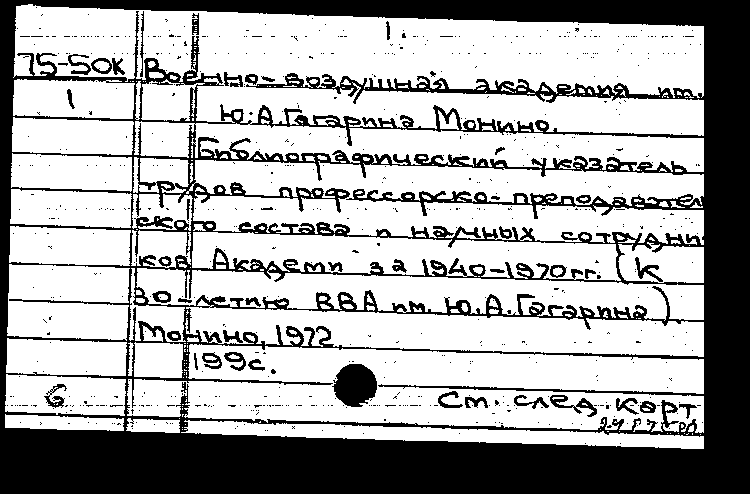 1.
75-50К Военно-воздушная академия им.
1. Ю.А.Гагарина. Монино.
Библиографический указатель
трудов профессорско-преподавател
ского состава и научных сотрудни
ков Академи за 1940-1970гг. (К
30-летию ВВА им. Ю.А.Гагарина).
Монино, 1972.
199с.
6. См. след. карт